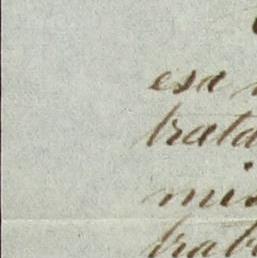 esa
trata
mis
trab